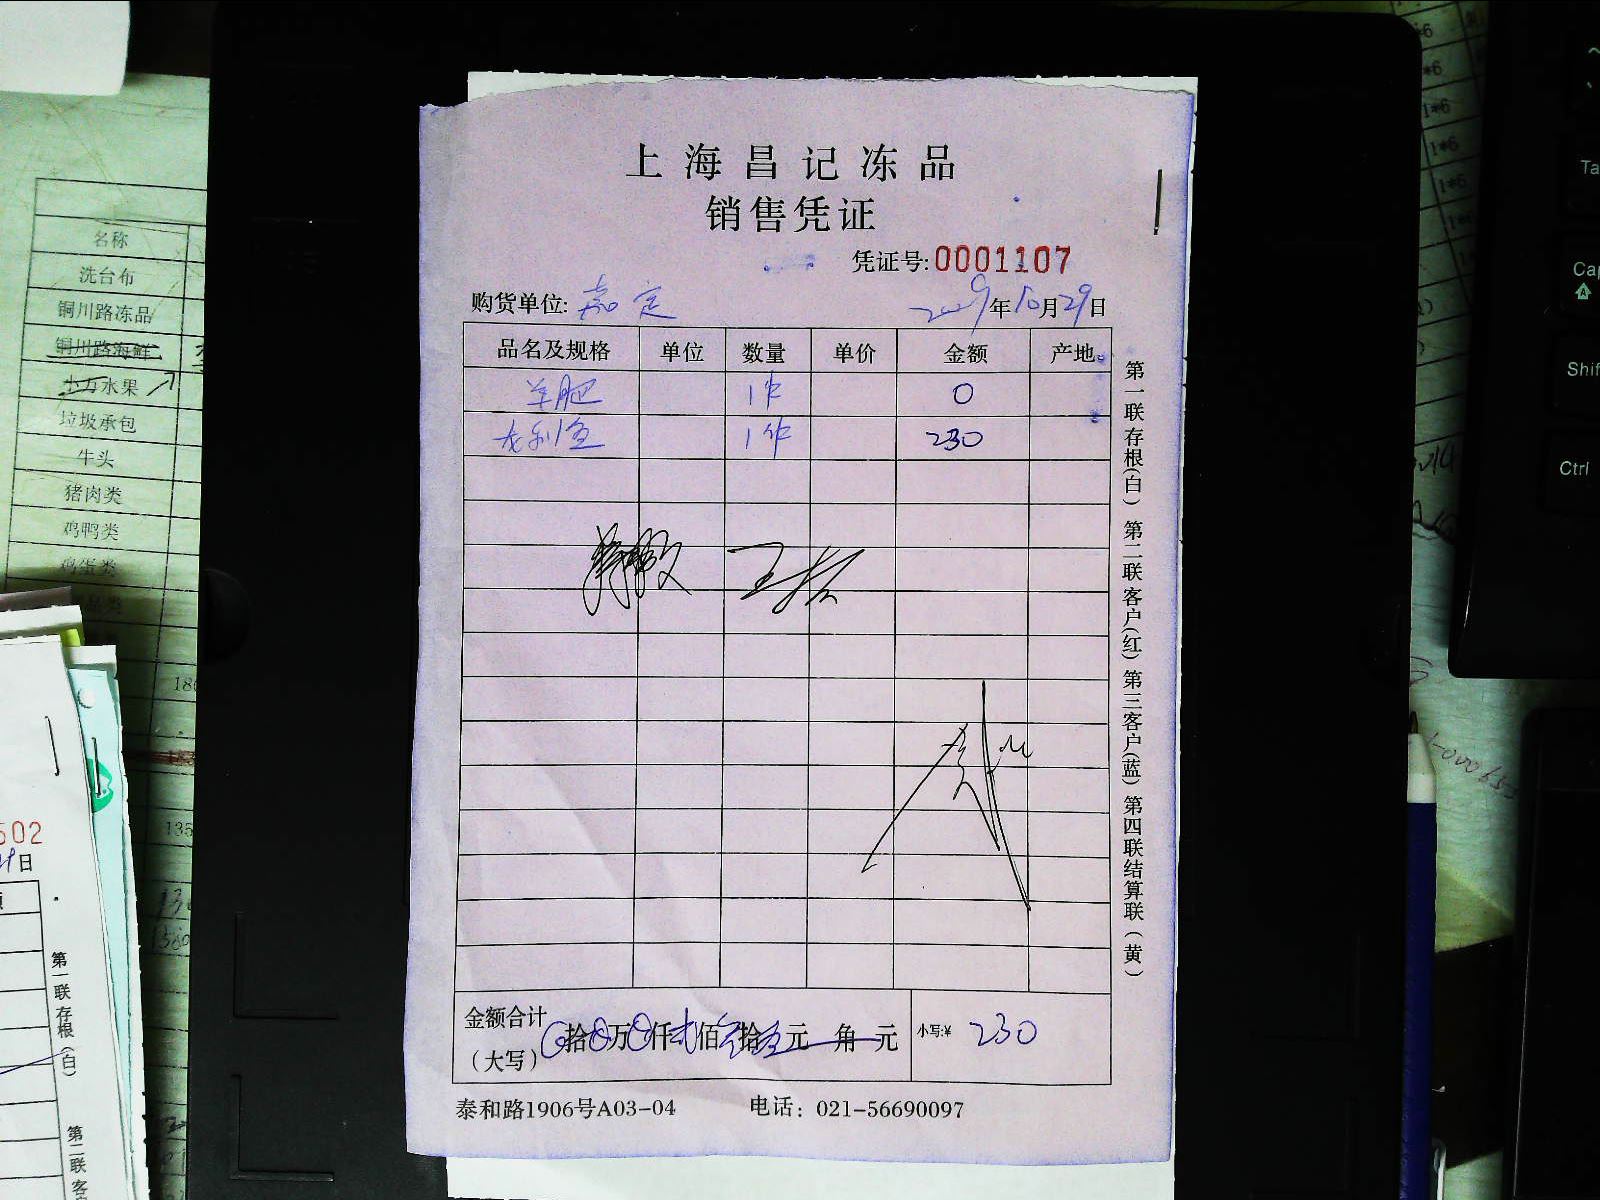 上海昌记冻品
销售凭证
凭证号:0001107
购货单位: 嘉定 年10月29日
品名及规格 单位 数量 单价 金额 产地
羊肥 1件 0
龙利鱼 1件 230
金额合计
(大写) 拾 万 仟贰佰叁拾 元 角 元 小写:¥ 230
泰和路1906号A03-04 电话: 021-56690097
第一联存根(白) 第二联客户(红) 第三客户(蓝) 第四联结算联(黄)
名称
洗台布
铜川路冻品
铜川路海鲜
水果
垃圾承包
牛头
猪肉类
鸡鸭类
鸡蛋类
品类
502
日
第一联存根(白)
第二联
1*6
1*6
1*6
1*6
Shif
Ctrl